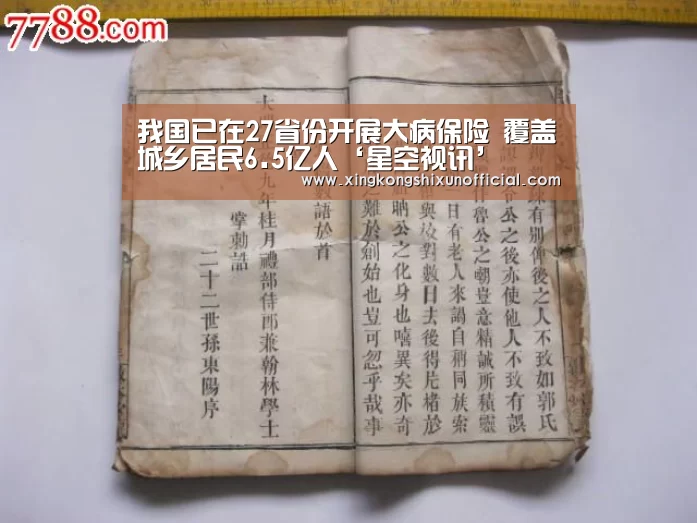 7788.com
我国已在27省份开展大病保险 覆盖
城乡居民6.5亿人‘星空视讯’
www.xingkongshixunofficial.com
有別俾後之人不致如郭氏
公之後亦使他人不致有誤
魯公之嘲豈意精誠所積靈
日有老人來謁自稱同族索
與放對數日去後得片楮於
聃公之化身也嘻異矣亦奇
之難於創始也豈可忽乎哉事
數語於首
九年桂月禮部侍郎兼翰林學士
掌勅誥
二十二世孫東陽序